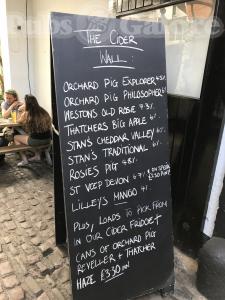 THE CIDER
WALL:
ORCHARD PIG EXPLORER 4.5%
ORCHARD PIG PHILOSOPHER
WESTONS OLD ROSIE 7.3%
THATCHERS BIG APPLE
STAN'S CHEDDAR VALLEY 6%
STAN'S TRADITIONAL 6%
ROSIES PIG 4.8%
ST VEEP DEVON 6%
LILLEY'S MANGO 4%
PLUS, LOADS TO PICK FROM
IN OUR CIDER FRIDGE &
CANS OF ORCHARD PIG
REVELLER & THATCHER
HAZE £3.30